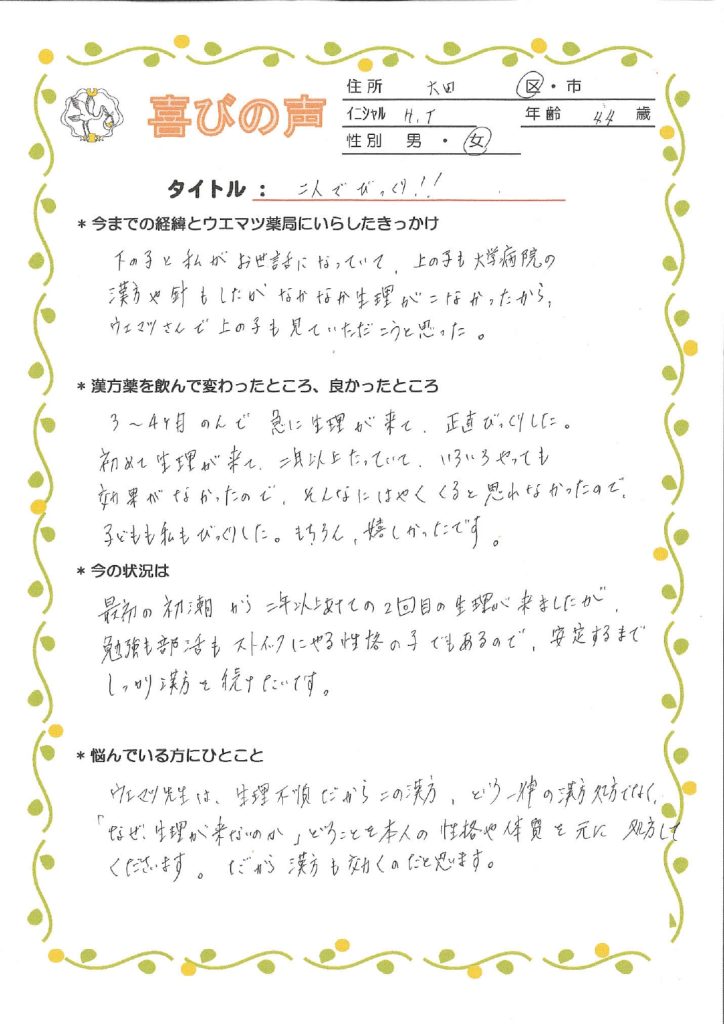 喜びの声
住所 大田 区・市
イニシャル H.T 年齢 44 歳
性別 男・女
タイトル： 二人でびっくり!!
＊今までの経緯とウエマツ薬局にいらしたきっかけ
下の子と私がお世話になっていて、上の子も大学病院の
漢方や針もしたがなかなか生理がこなかったから、
ウエマツさんで上の子も見ていただこうと思った。
＊漢方薬を飲んで変わったところ、良かったところ
3〜4ヶ月のんで急に生理が来て、正直びっくりした。
初めて生理が来て、二年以上たっていて、いろいろやっても
効果がなかったので、そんなにはやくくると思れなかったので、
子どもも私もびっくりした。もちろん、嬉しかったです。
＊今の状況は
最初の初潮から二年以上あけての2回目の生理が来ましたが、
勉強も部活もストイックにやる性格の子でもあるので、安定するまで
しっかり漢方を続けたいです。
＊悩んでいる方にひとこと
ウエマツ先生は、生理不順だからこの漢方、という一律の漢方処方でなく、
「なぜ、生理が来ないのか」ということを本人の性格や体質を元に処方して
くださいます。だから漢方も効くのだと思います。